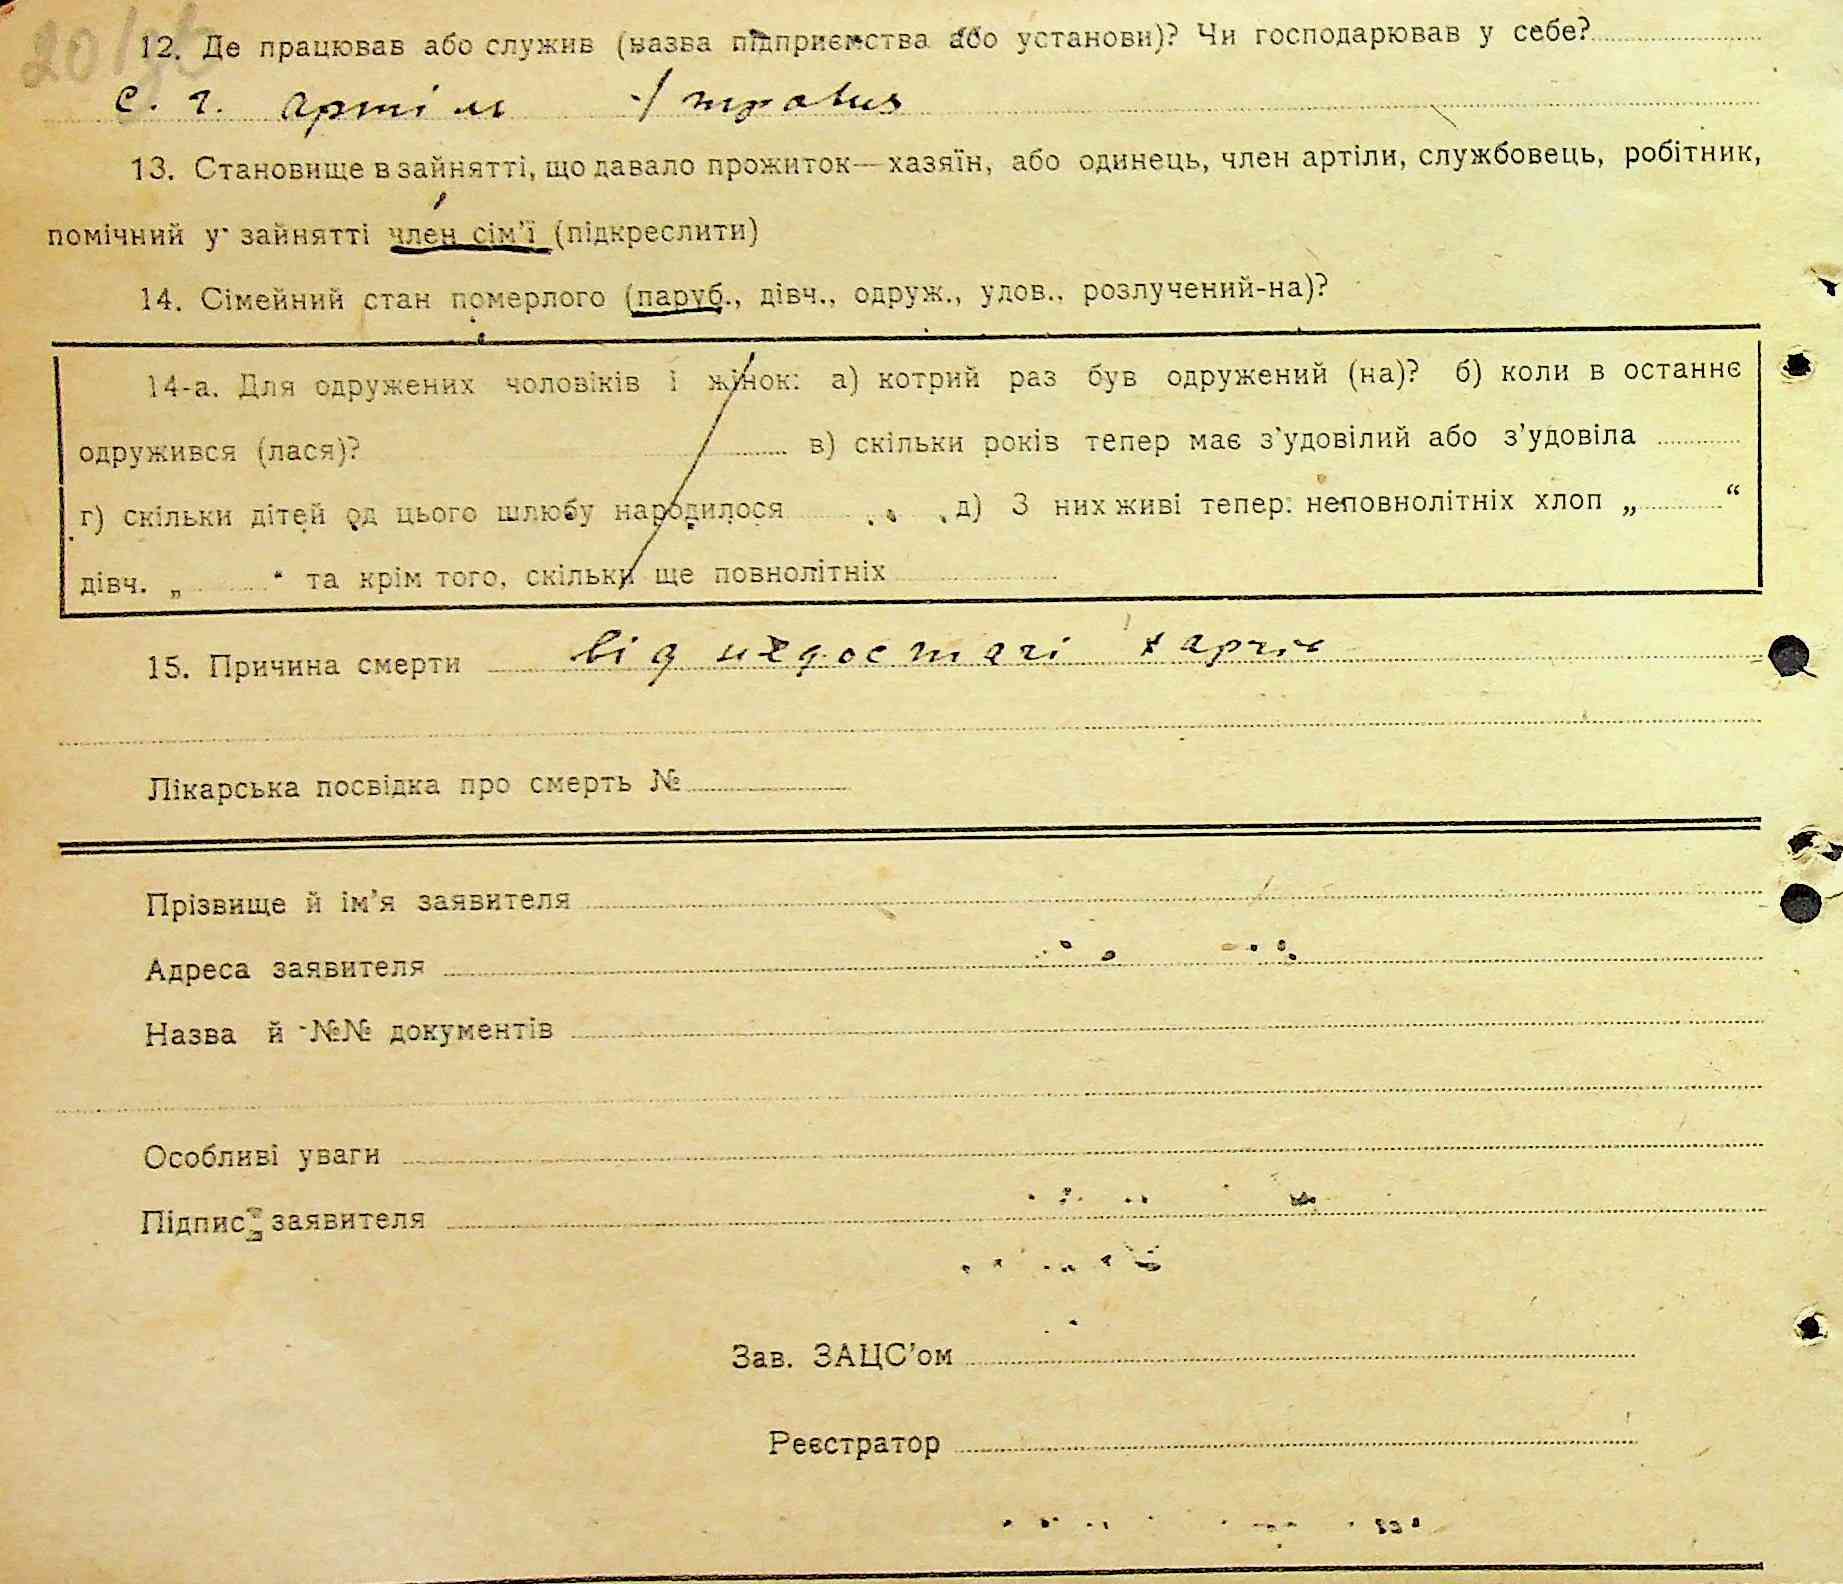 12. Де працював або служив (назва підприємства або установи)? Чи господарював у себе?
с. г. артіл
13. Становище в зайнятті, що давало прожиток—хазяїн, або одинець, член артіли, службовець, робітник,
помічний у зайнятті член сім'ї (підкреслити)
14. Сімейний стан померлого (паруб., дівч., одруж., удов., розлучений-на)?
14-а. Для одружених чоловіків і жінок: а) котрий раз був одружений (на)? б) коли в останнє
одружився (лася)? в) скільки років тепер має з'удовілий або з'удовіла
г) скільки дітей од цього шлюбу народилося д) З них живі тепер: неповнолітніх хлоп „ “
дівч. „ “ та крім того, скільки ще повнолітніх
15. Причина смерти від недостачі харчів
Лікарська посвідка про смерть №
Прізвище й ім'я заявителя
Адреса заявителя
Назва й №№ документів
Особливі уваги
Підпис заявителя
Зав. ЗАЦС'ом
Реєстратор